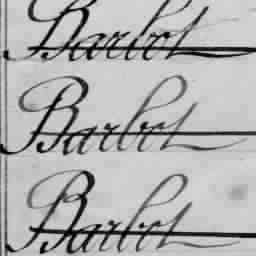 Barbot
Barbot
Barbot